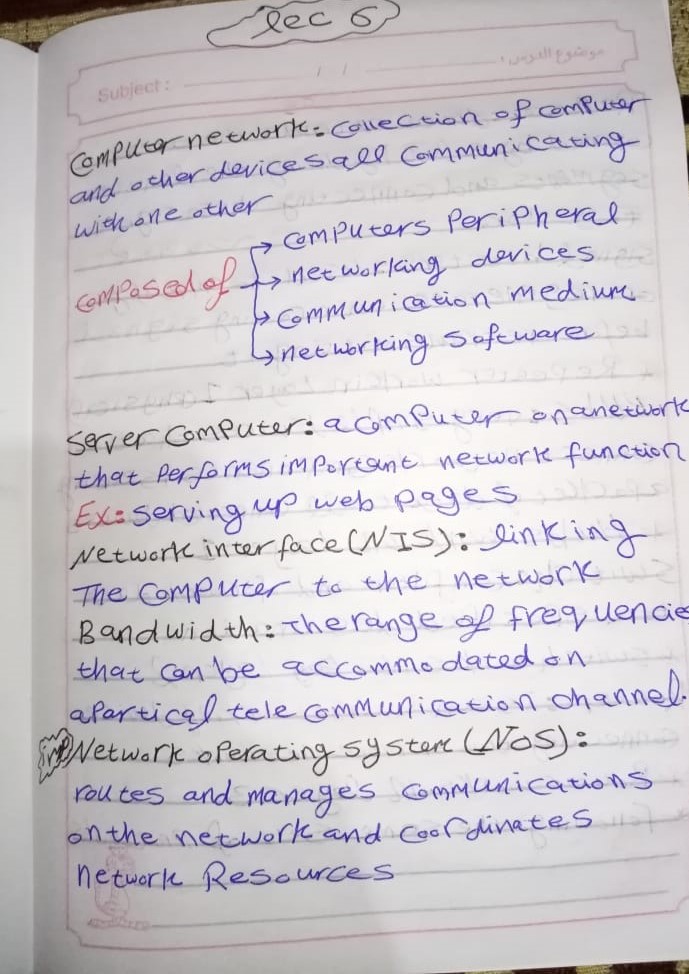 lec 6
Subject: / / موضوع الدرس:
Computer network: Collection of computer
and other devices all Communicating
with one other
composed of
→ computers Peripheral
→ networking devices
→ Communication medium
→ networking Software
Server Computer: a computer on a network
that Performs important network function
Ex: serving up web pages
Network interface (NIS): linking
The Computer to the network
Bandwidth: The range of frequencies
that can be accommodated on
a Partical tele communication channel.
imp Network operating system (NOS):
routes and manages Communications
on the network and Coordinates
network Resources